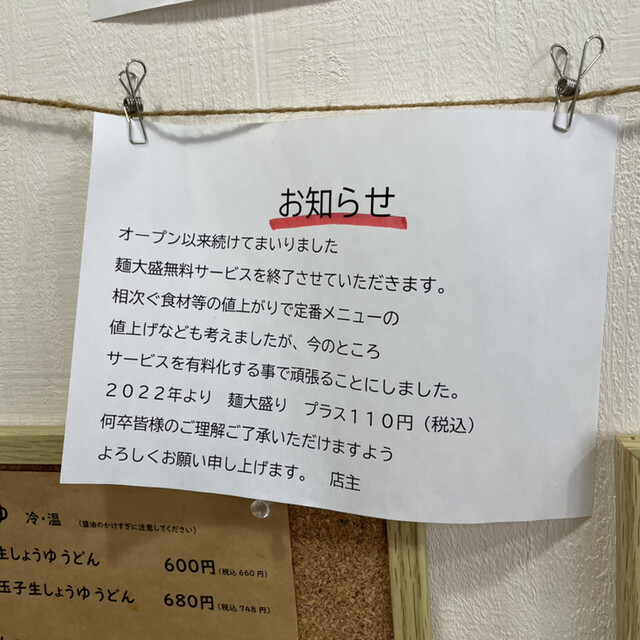 お知らせ
オープン以来続けてまいりました
麺大盛無料サービスを終了させていただきます。
相次ぐ食材等の値上がりで定番メニューの
値上げなども考えましたが、今のところ
サービスを有料化する事で頑張ることにしました。
２０２２年より　麺大盛り　プラス１１０円（税込）
何卒皆様のご理解ご了承いただけますよう
よろしくお願い申し上げます。　店主
冷・温　（醤油のかけすぎに注意してください）
生しょうゆうどん　600円(税込 660円)
玉子生しょうゆうどん　680円(税込 748円)